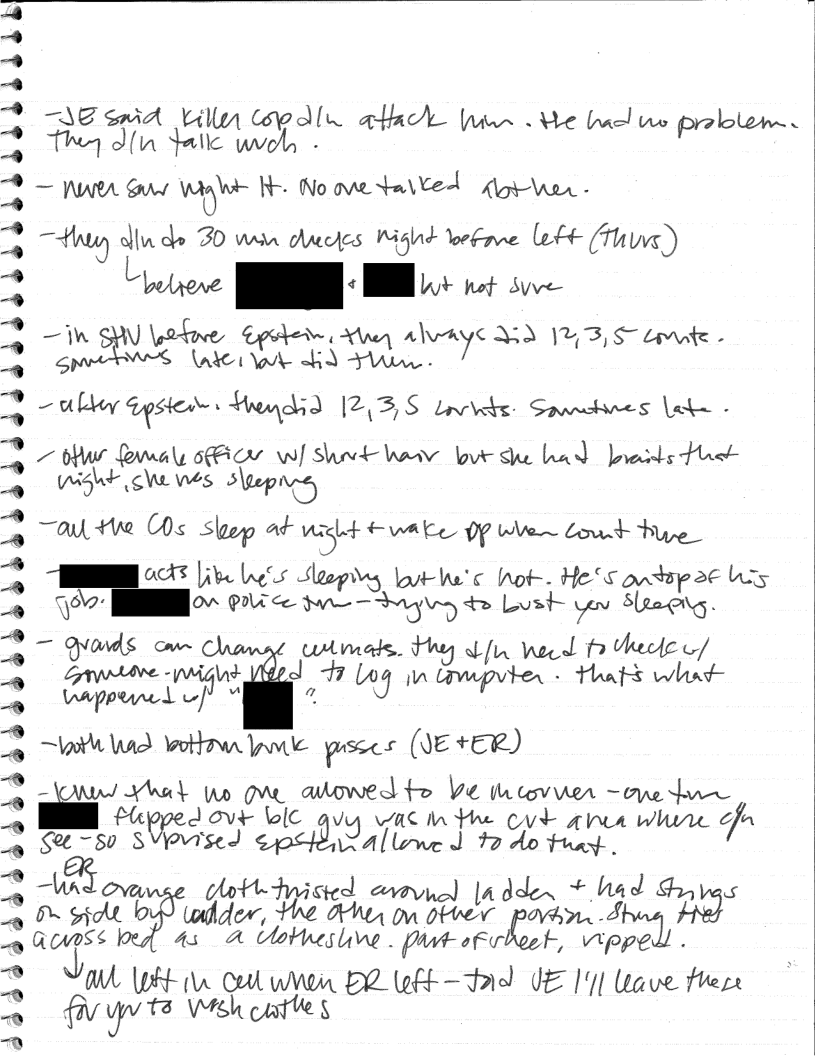 -JE said killer cop d/n attack him. He had no problem.
They d/n talk much.
- never saw night Lt. No one talked abt her.
- they d/n do 30 min checks night before left (Thurs)
believe + but not sure
- in SHU before Epstein, they always did 12, 3, 5 counts.
sometimes late, but did them.
- after Epstein, they did 12, 3, 5 counts. Sometimes late.
- other female officer w/ short hair but she had braids that
night, she was sleeping
- all the COs sleep at night + wake up when count time
- acts like he's sleeping but he's not. He's on top of his
job. on police time - trying to bust you sleeping.
- guards can change cellmates. They d/n need to check w/
someone - might need to log in computer. That's what
happened w/ " ".
- both had bottom bunk passes (JE + ER)
- knew that no one allowed to be in corner - one time
flipped out b/c guy was in the cut area where c/n
see - so surprised Epstein allowed to do that.
ER
- had orange cloth twisted around ladder + had strings
on side by ladder, the other on other portion. String
across bed as a clothesline. part of sheet, ripped.
all left in cell when ER left - told JE I'll leave these
for you to wash clothes